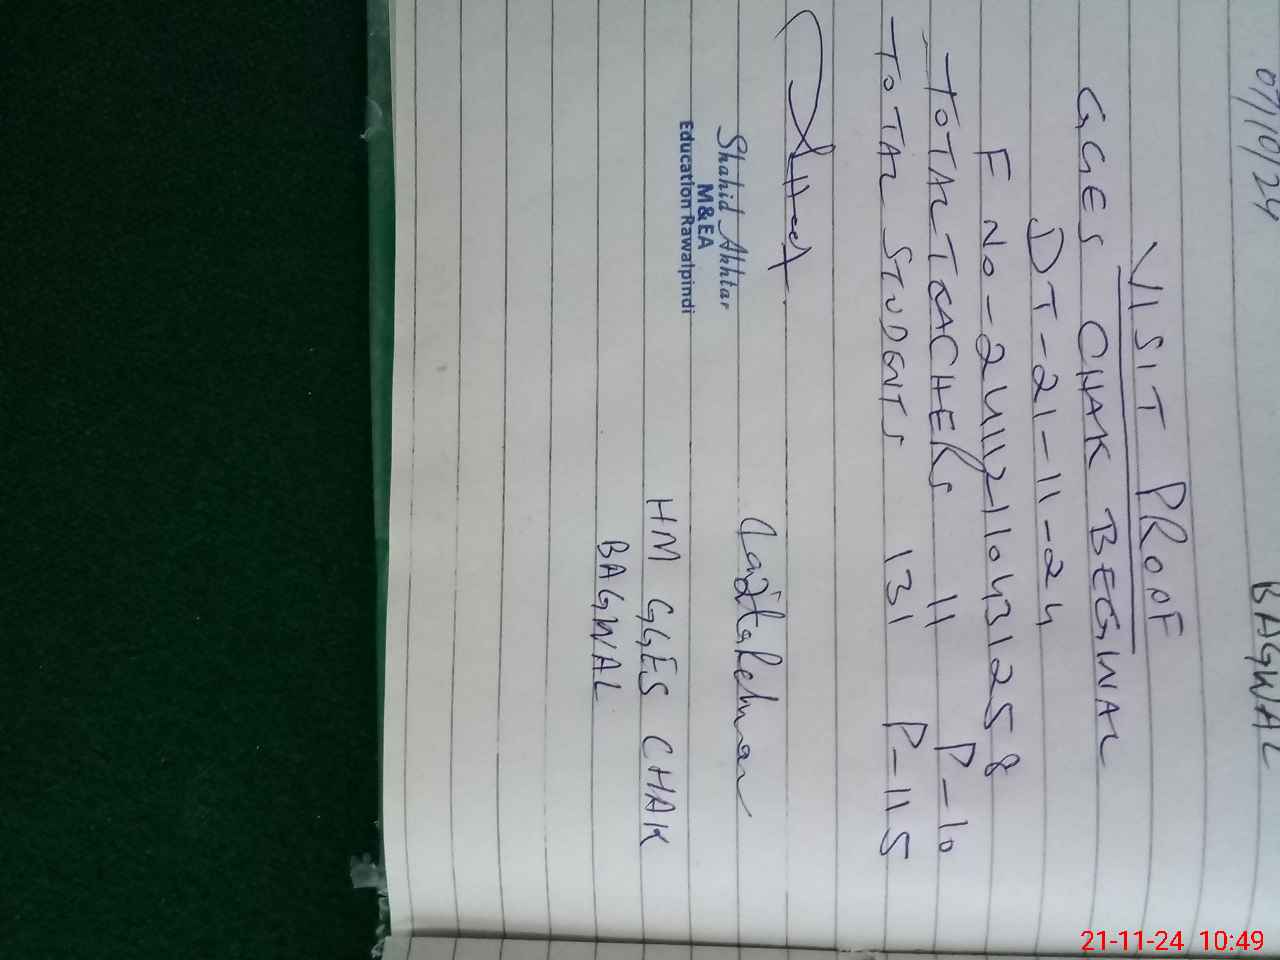 07/10/24
BAGWAL
VISIT PROOF
GGES CHAK BEGWAL
DT-21-11-24
F NO-24112110431258
TOTAL TEACHERS 11 P-10
TOTAL STUDENTS 131 P-115
Shahid Akhtar
M&EA
Education Rawalpindi
HM GGES CHAK
BAGWAL
21-11-24 10:49